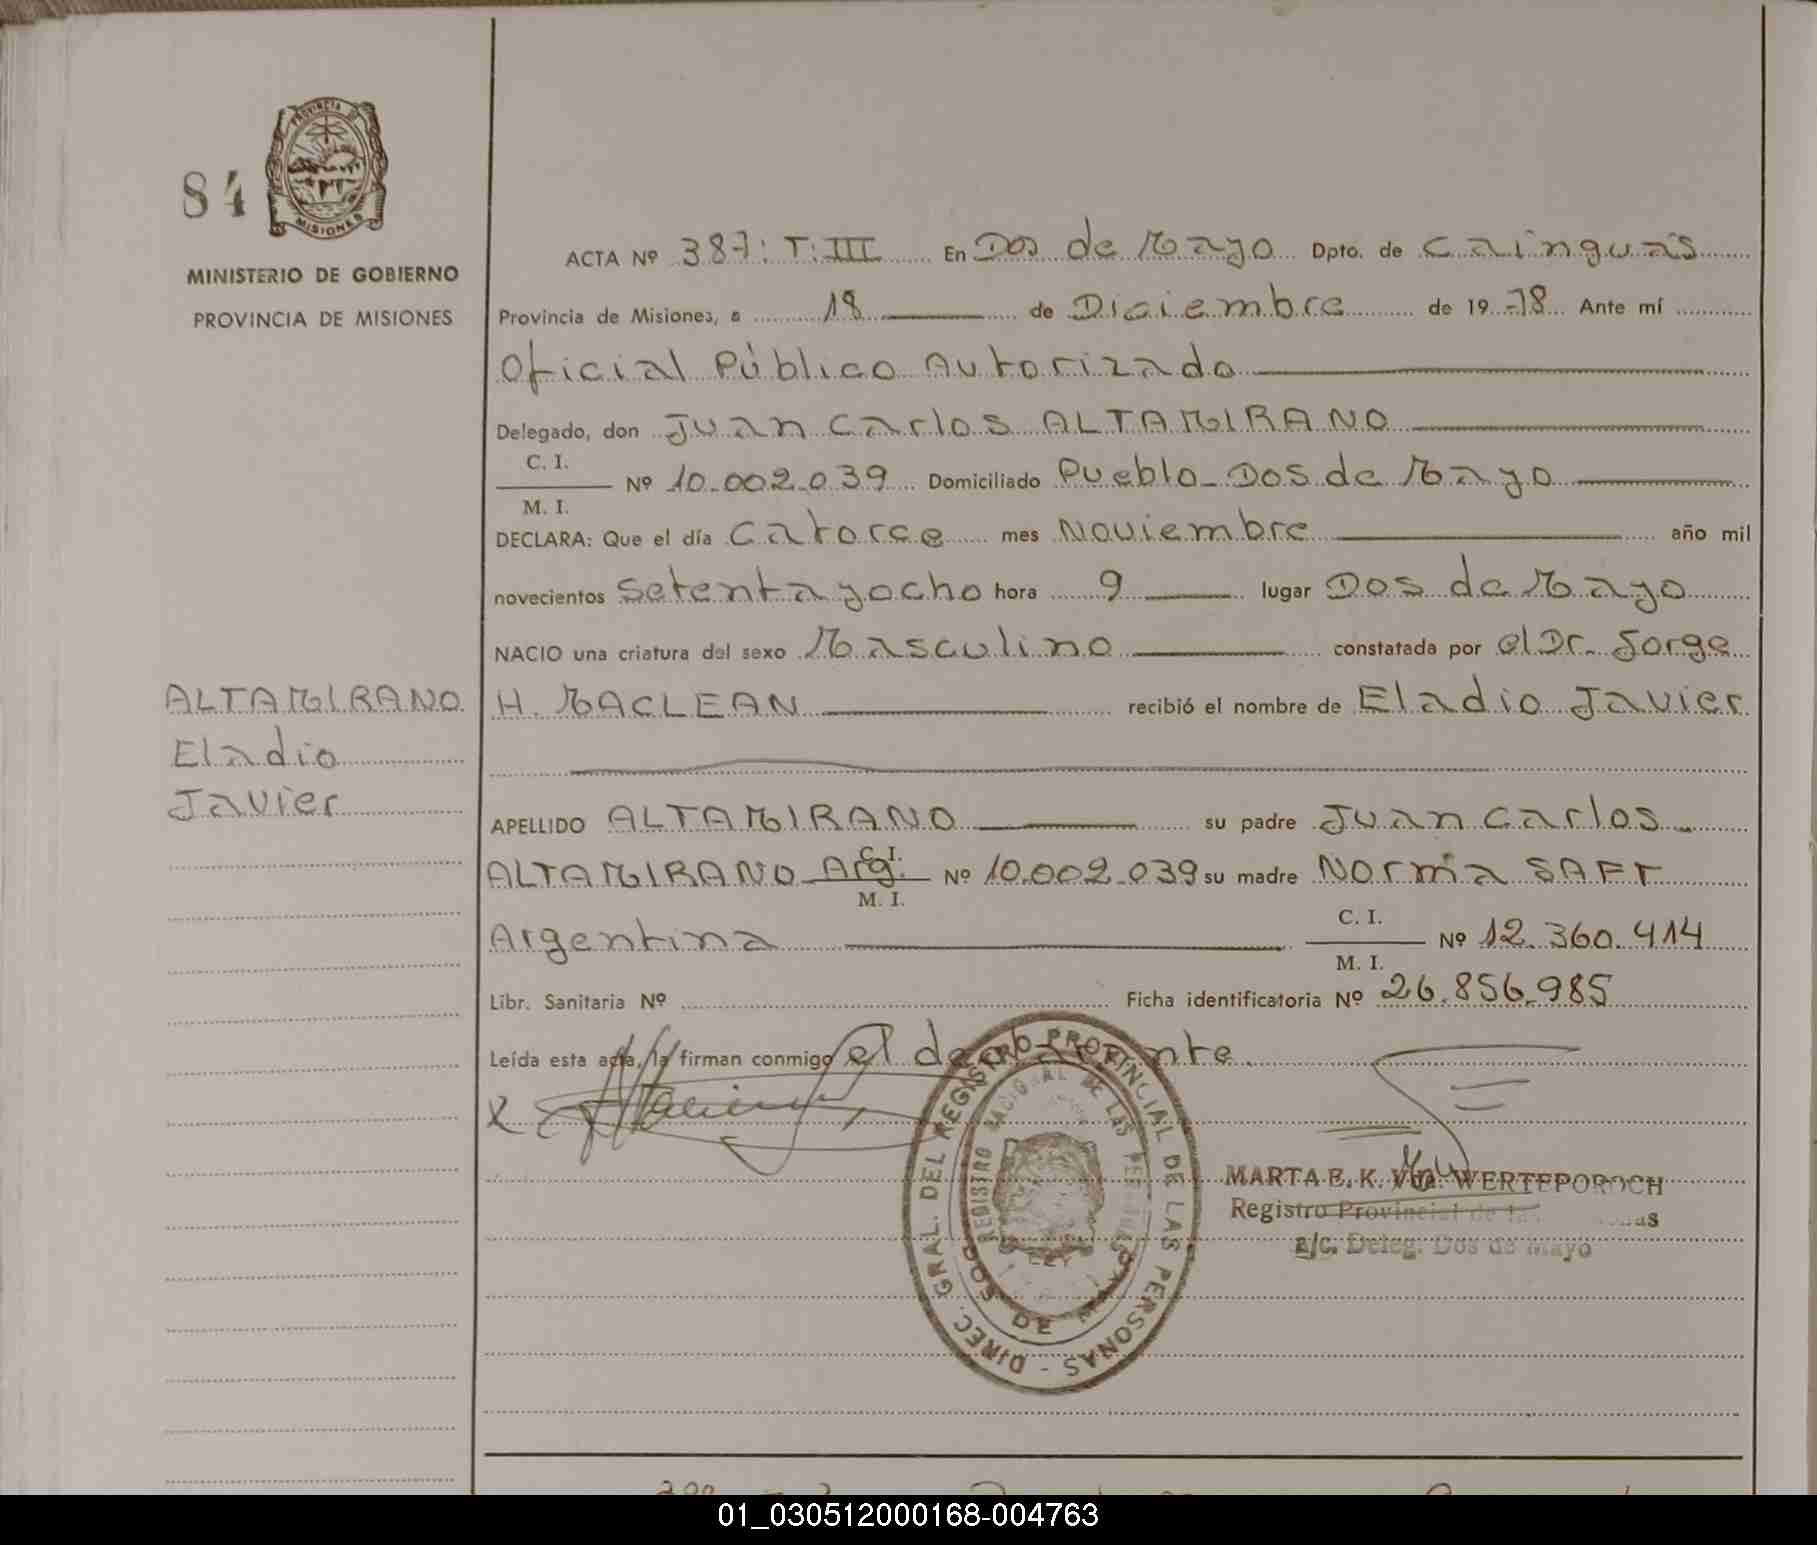 84
PROVINCIA DE
MISIONES
MINISTERIO DE GOBIERNO
PROVINCIA DE MISIONES
ACTA Nº 387: T: III En Dos de Mayo Dpto. de Cainguás
Provincia de Misiones, a 18 de Diciembre de 19 78 Ante mí
Oficial Público Autorizado
Delegado, don Juan Carlos ALTAMIRANO
C. I.
M. I.
Nº 10.002.039 Domiciliado Pueblo - Dos de Mayo
DECLARA: Que el día Catorce mes Noviembre año mil
novecientos setenta y ocho hora 9 lugar Dos de Mayo
NACIO una criatura del sexo Masculino constatada por el Dr. Jorge
H. MACLEAN recibió el nombre de Eladio Javier
ALTAMIRANO
Eladio
Javier
APELLIDO ALTAMIRANO su padre Juan Carlos
ALTAMIRANO Arg. C. I. M. I. Nº 10.002.039 su madre Norma SAFT
Argentina C. I. M. I. Nº 12.360.414
Libr. Sanitaria Nº Ficha identificatoria Nº 26.856.985
Leída esta acta, la firman conmigo el declarante.
X
DIREC. GRAL. DEL REGISTRO PROVINCIAL DE LAS PERSONAS -
REGISTRO NACIONAL DE LAS PERSONAS
LEY
DOS DE MAYO
MARTA E. K. Vda. WERTEPOROCH
Registro Provincial de las
a/c. Deleg. Dos de Mayo
01_030512000168-004763